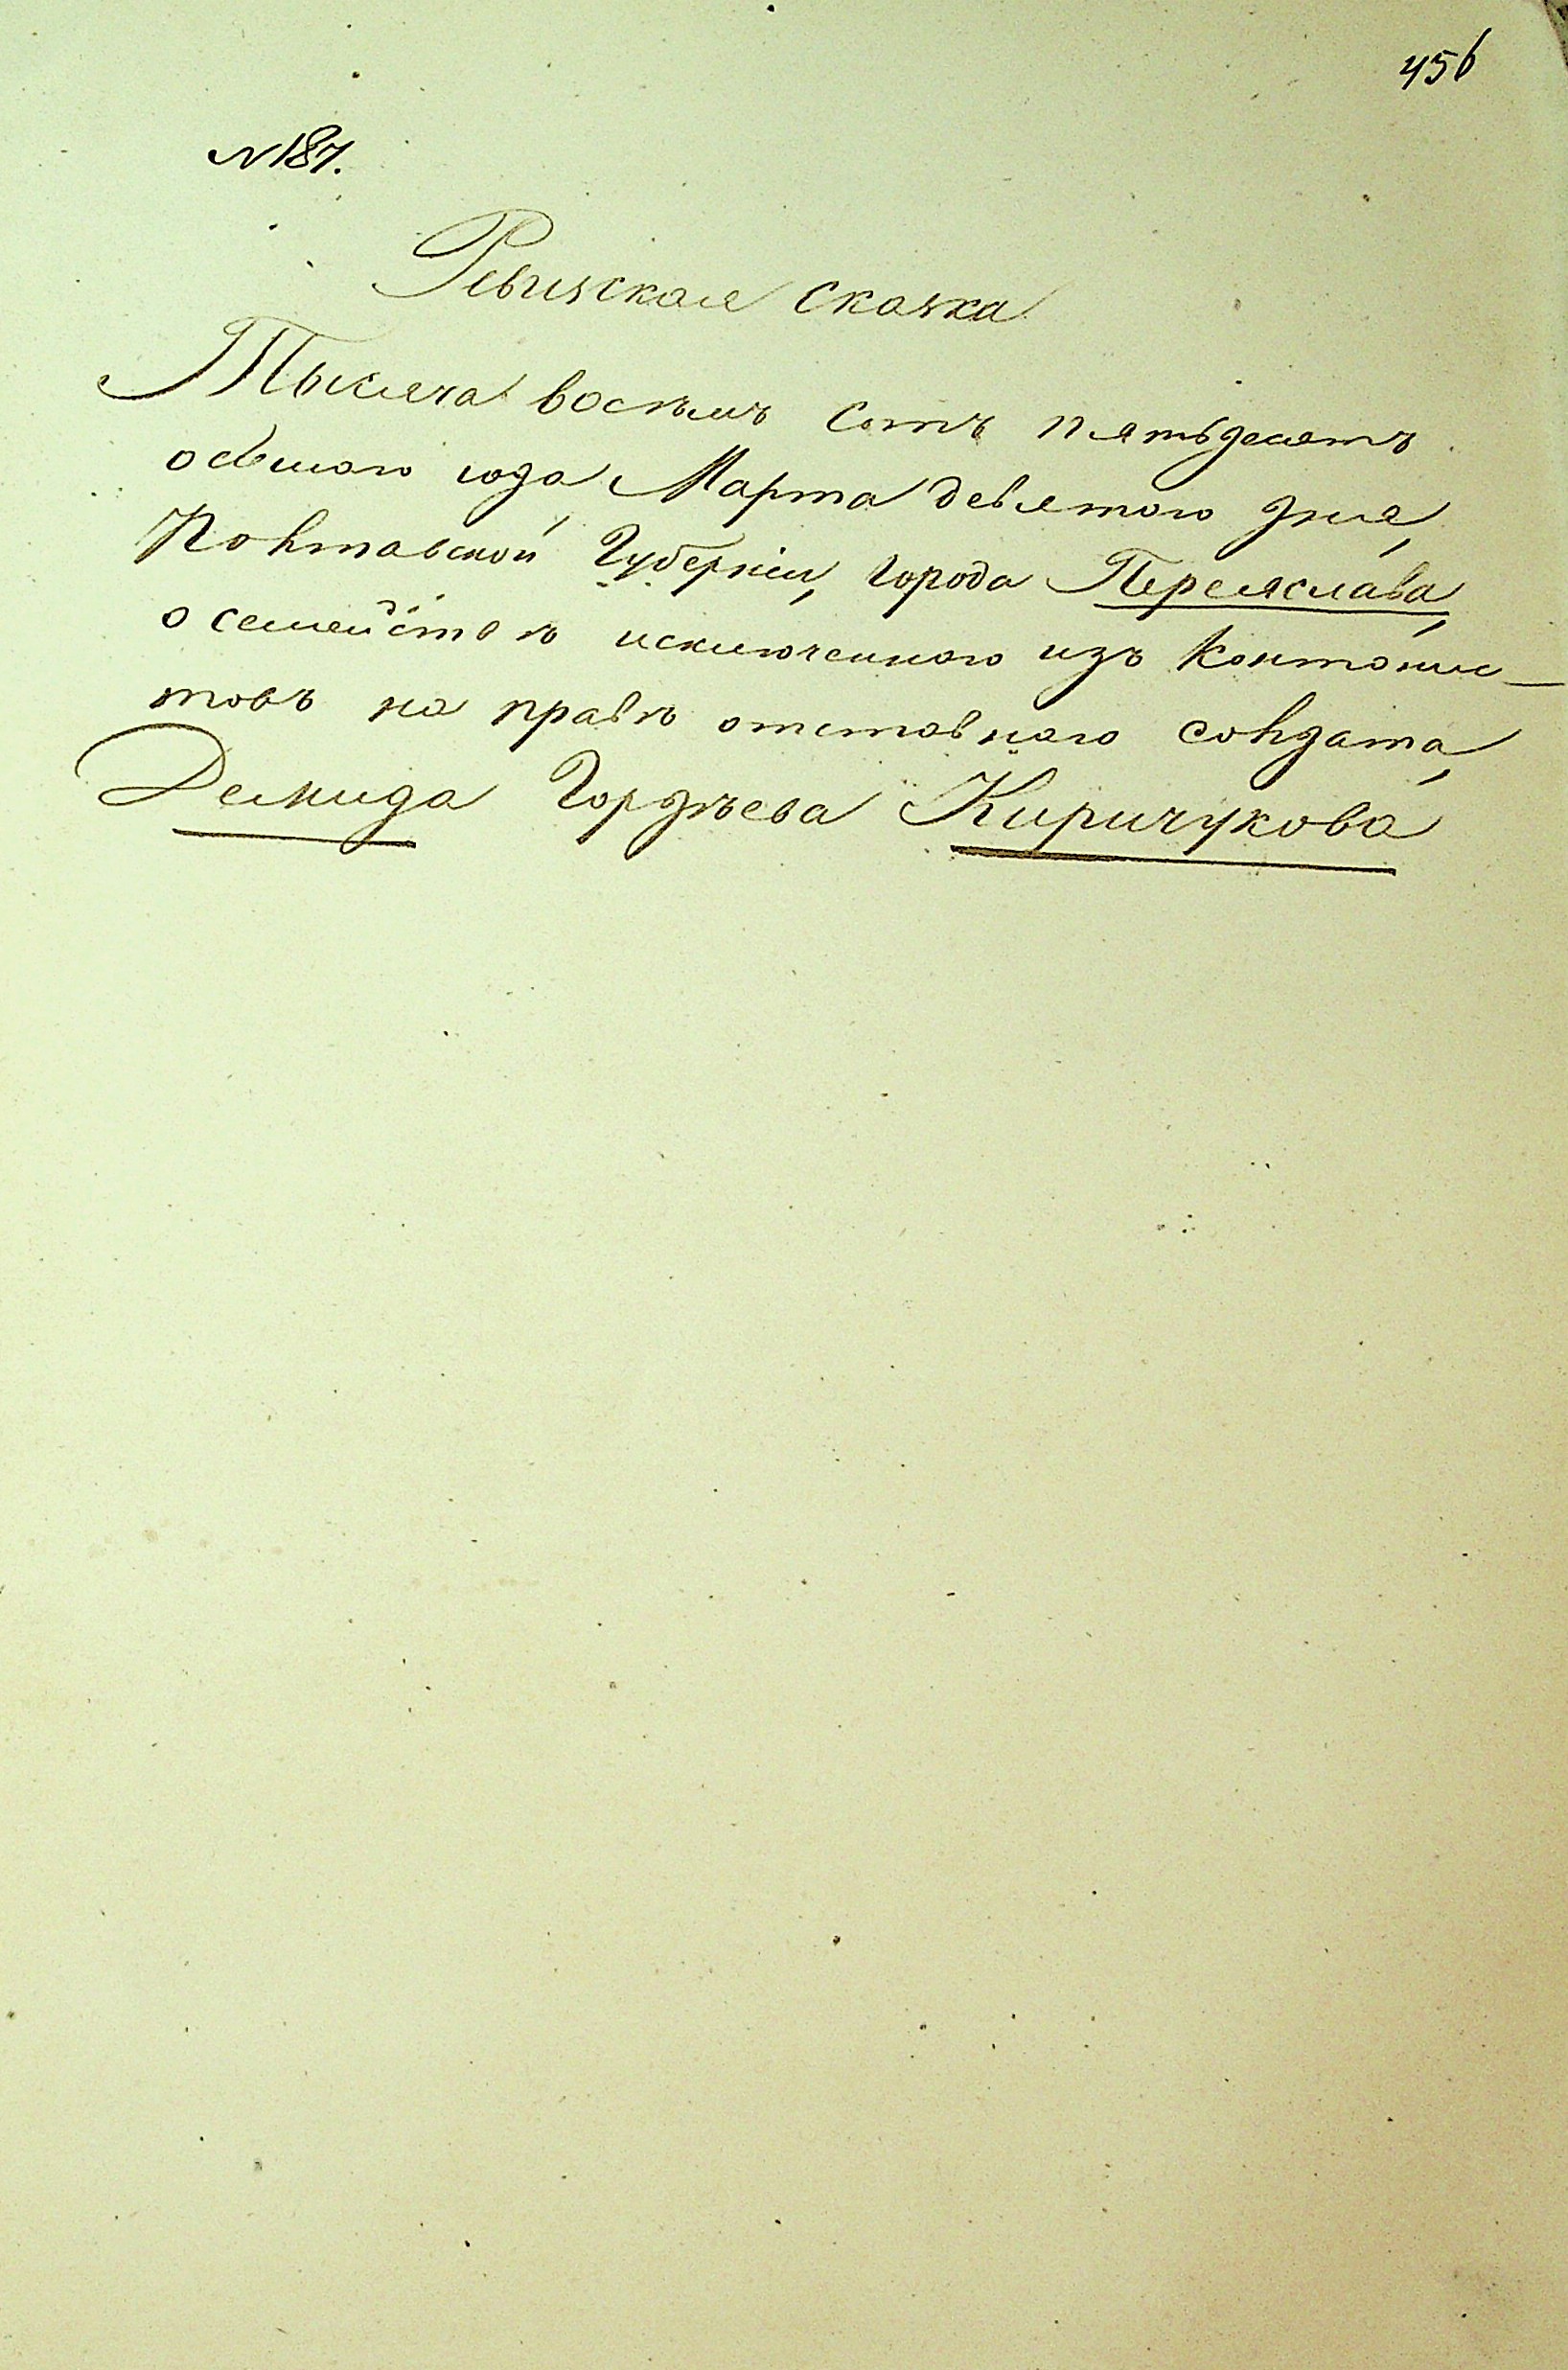 456
№187.
Ревизская сказка
Тысяча восѣмъ сотъ пятьдесятъ
осьмого года Марта девятого дня,
Полтавской Губерніи, города Переяслава,
о семействѣ исключенного изъ Кантонис-
товъ на правѣ отставного солдата,
Демида Гордѣева Киричукова